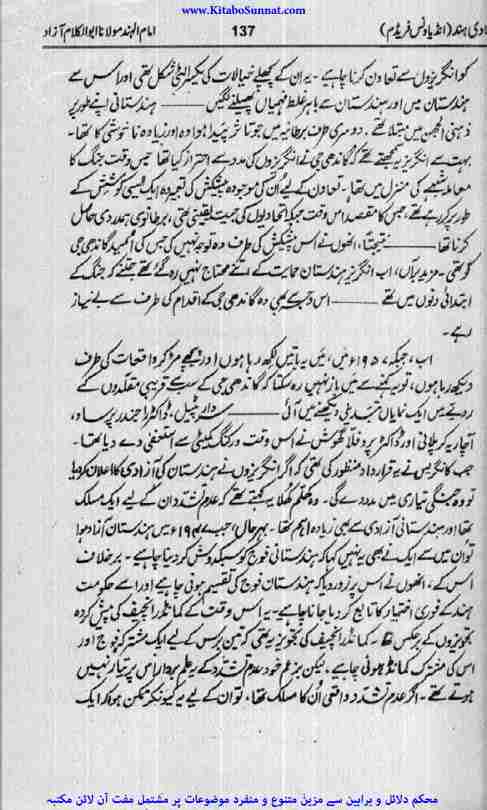 www.KitaboSunnat.com
ادی ہند (انڈیا ونس فریڈم) 137 امام الہند مولانا ابوالکلام آزاد
کو انگریزوں سے تعاون کرنا چاہیے۔ یہ ان کے پچھلے خیالات کی یکسر الٹی شکل تھی اور اس سے
ہندستان میں اور ہندستان سے باہر غلط فہمیاں پھیلنے لگیں ——— ہندستانی اپنے طور پر
ذہنی الجھن میں مبتلا تھے۔ دوسری طرف برطانیہ میں جو تاثر پیدا ہوا وہ اور زیادہ ناخوشی کا تھا۔
بہت سے انگریز یہ سمجھتے تھے کہ گاندھی جی نے انگریزوں کی مدد سے احتراز کیا تھا جس وقت جنگ کا
معاملہ شبہے کی منزل میں تھا۔ تعاون کے لیے اُن کی موجودہ پیشکش کی تعبیر وہ ایک ایسی کوشش کے
طور پر کر رہے تھے، جس کا مقصد اس وقت جبکہ اتحادیوں کی جیت یقینی تھی، برطانوی ہمدردی حاصل
کرنا تھا ——— نتیجتاً، انھوں نے اس پیشکش کی طرف وہ توجہ نہیں کی جس کی اُمید گاندھی جی
کو تھی۔ مزید برآں، اب انگریز ہندستانی حمایت کے اتنے محتاج نہیں رہ گئے تھے جتنے کہ جنگ کے
ابتدائی دنوں میں تھے ——— اس وجہ سے بھی وہ گاندھی جی کے اقدام کی طرف سے بے نیاز
رہے۔
اب، جبکہ ۱۹۵۷ء میں، میں یہ باتیں لکھ رہا ہوں اور پیچھے مڑ کر واقعات کی طرف
دیکھ رہا ہوں، تو یہ کہنے میں باز نہیں رہ سکتا کہ گاندھی جی کے سب سے قریبی مقلدوں کے
رویے میں ایک نمایاں تبدیلی دیکھنے میں آئی ——— سردار پٹیل، ڈاکٹر راجندر پرساد،
آچاریہ کرپلانی اور ڈاکٹر پرفلّا گھوش نے اس وقت ورکنگ کمیٹی سے استعفیٰ دے دیا تھا۔
جب کانگریس نے یہ قرارداد منظور کی تھی کہ اگر انگریزوں نے ہندستان کی آزادی کا اعلان کر دیا
تو وہ جنگی تیاری میں مدد دے گی۔ وہ کھلم کھلا یہ کہتے تھے کہ عدم تشدد ان کے لیے ایک مسلک
تھا اور ہندستانی آزادی سے بھی زیادہ اہم تھا۔ بہر حال، جب ۱۹۴۷ء میں ہندستان آزاد ہوا
تو ان میں سے ایک نے بھی یہ نہیں کہا کہ ہندستانی فوج کو سبکدوش کر دینا چاہیے۔ برخلاف
اس کے، انھوں نے اس پر زور دیا کہ ہندستانی فوج کی تقسیم ہونی چاہیے اور اسے حکومت
ہند کے فوری اختیار کا تابع کر دیا جانا چاہیے۔ یہ اس وقت کے کمانڈر انچیف کی پیش کردہ
تجویزوں کے برعکس تھا۔ کمانڈر انچیف کی تجویز یہ تھی کہ تین برس کے لیے ایک مشترکہ فوج اور
اس کی مشترک کمانڈ ہونی چاہیے۔ لیکن بزعم خود عدم تشدد کے یہ علم بردار اس پر تیار نہیں
ہوتے تھے۔ اگر عدم تشدد واقعی اُن کا مسلک تھا، تو ان کے لیے یہ کیونکر ممکن ہوا کہ ایک
محکم دلائل و براہین سے مزین متنوع و منفرد موضوعات پر مشتمل مفت آن لائن مکتبہ